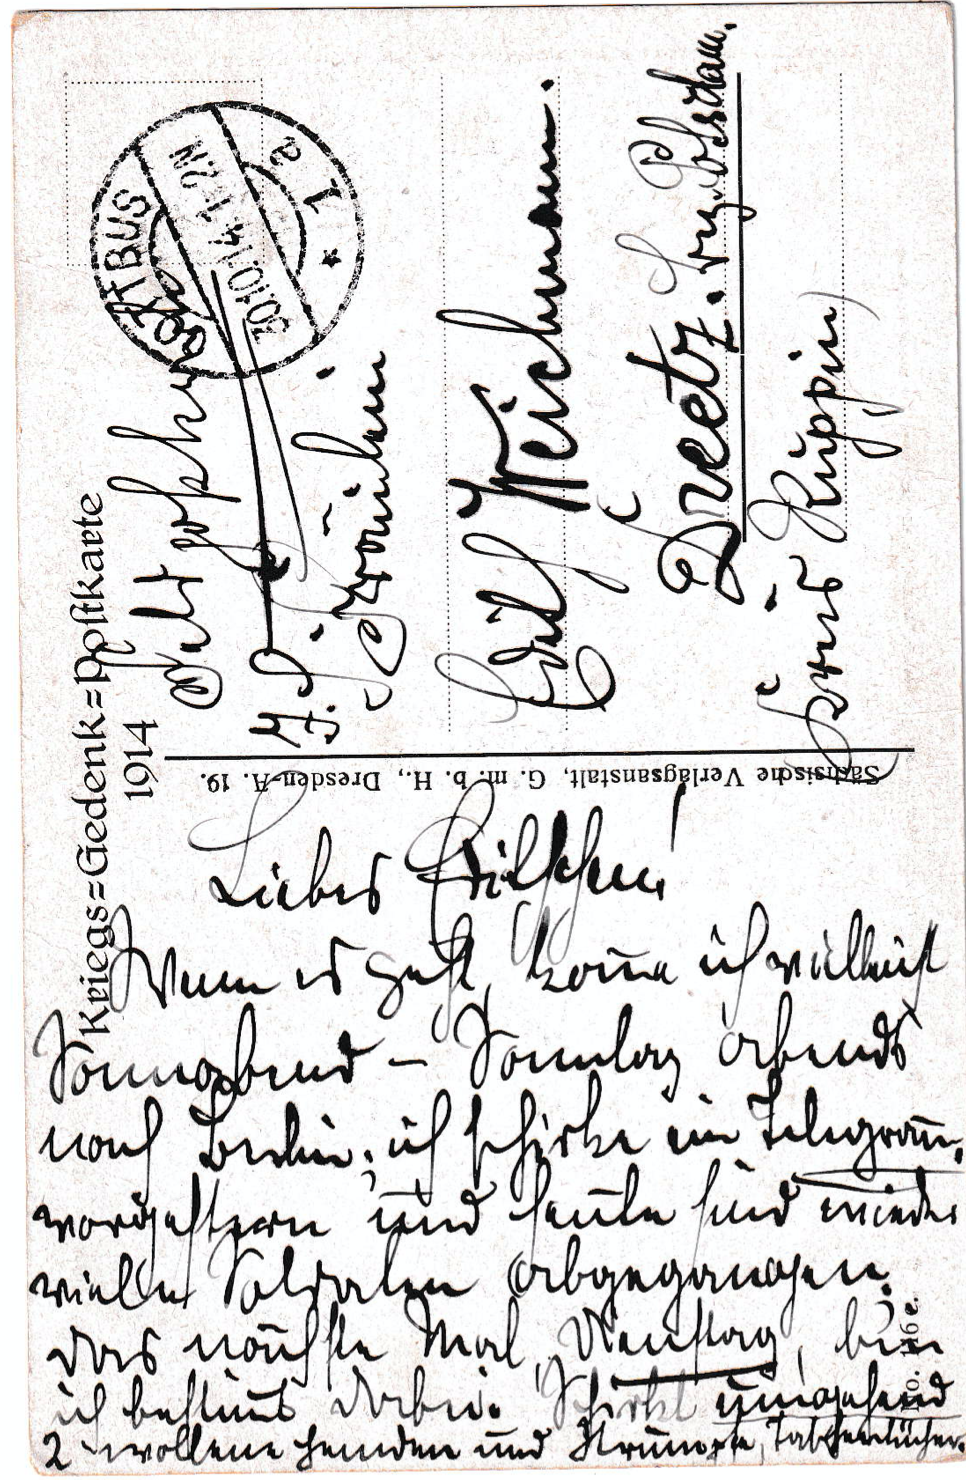 Kriegs=Gedenk=Postkarte
1914
COTTBUS
30.10.14. 1-2N
* 1 a
Feldpostkarte
Fräulein
Weichmann.
Dreetz. Bez. Potsdam.
Kreis Ruppin
Sächsische Verlagsanstalt, G. m. b. H., Dresden-A. 19.
Liebes
Wenn es geht, komme ich vielleicht
Sonnabend – Sonntag abends
nach Berlin; ich schicke ein Telegram̅.
vorgestern und heute sind wieder
viele Soldaten abgegangen.
das nächste Mal, Dienstag, bin
ich bestimmt dabei. Schickt umgehend
2 wollene Hemden und Strümpfe, Taschentücher.